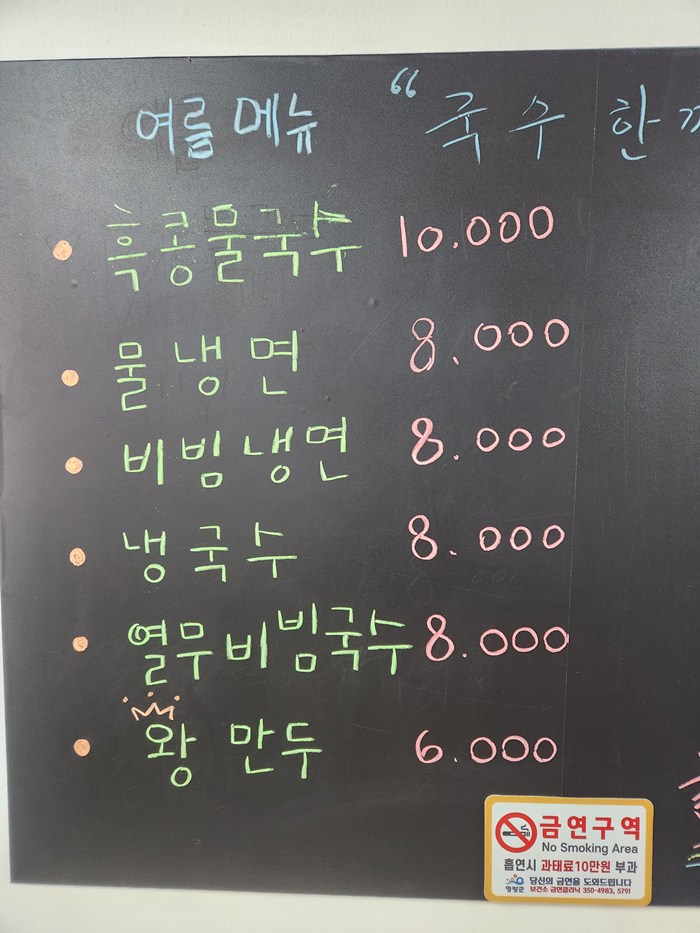 여름 메뉴 “국수 한
흑콩물국수 10.000
물냉면 8.000
비빔냉면 8.000
냉국수 8.000
열무비빔국수 8.000
왕만두 6.000
금연구역
No Smoking Area
흡연시 과태료10만원 부과
당신의 금연을 도와드립니다
영광군 보건소 금연클리닉 350-4983, 5791